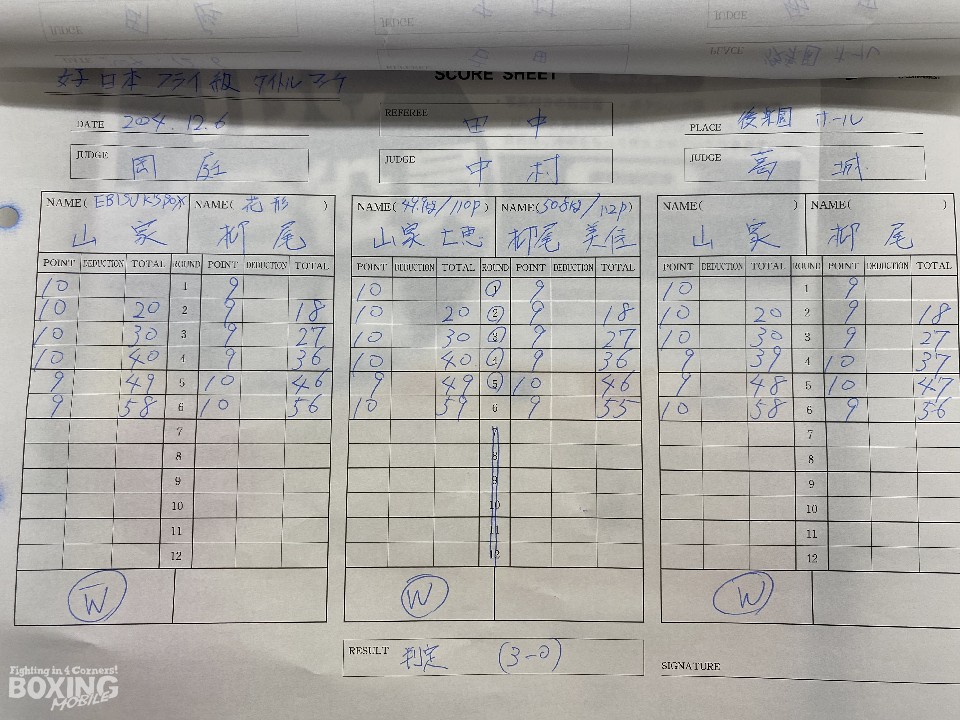 SCORE SHEET
女子 日本 フライ級 タイトルマッチ
DATE 2024.12.6
REFEREE 田中
PLACE 後楽園ホール
JUDGE 岡庭
JUDGE 中村
JUDGE 葛城
NAME( EBISU K'S BOX ) NAME( 花形 ) NAME( 49.9kg/110p ) NAME( 50.8kg/112p ) NAME( ) NAME( )
山家 柳尾 山家 七恵 柳尾 美佳 山家 柳尾
POINT DEDUCTION TOTAL ROUND POINT DEDUCTION TOTAL POINT DEDUCTION TOTAL ROUND POINT DEDUCTION TOTAL POINT DEDUCTION TOTAL ROUND POINT DEDUCTION TOTAL
10 1 9 10 1 9 10 1 9
10 20 2 9 18 10 20 2 9 18 10 20 2 9 18
10 30 3 9 27 10 30 3 9 27 10 30 3 9 27
10 40 4 9 36 10 40 4 9 36 9 39 4 10 37
9 49 5 10 46 9 49 5 10 46 9 48 5 10 47
9 58 6 10 56 10 59 6 9 55 10 58 6 9 56
7 7 7
8 8 8
9 9 9
10 10 10
11 11 11
12 12 12
W W W
RESULT 判定 (3-0)
SIGNATURE
Fighting in 4 Corners!
BOXING
MOBILE